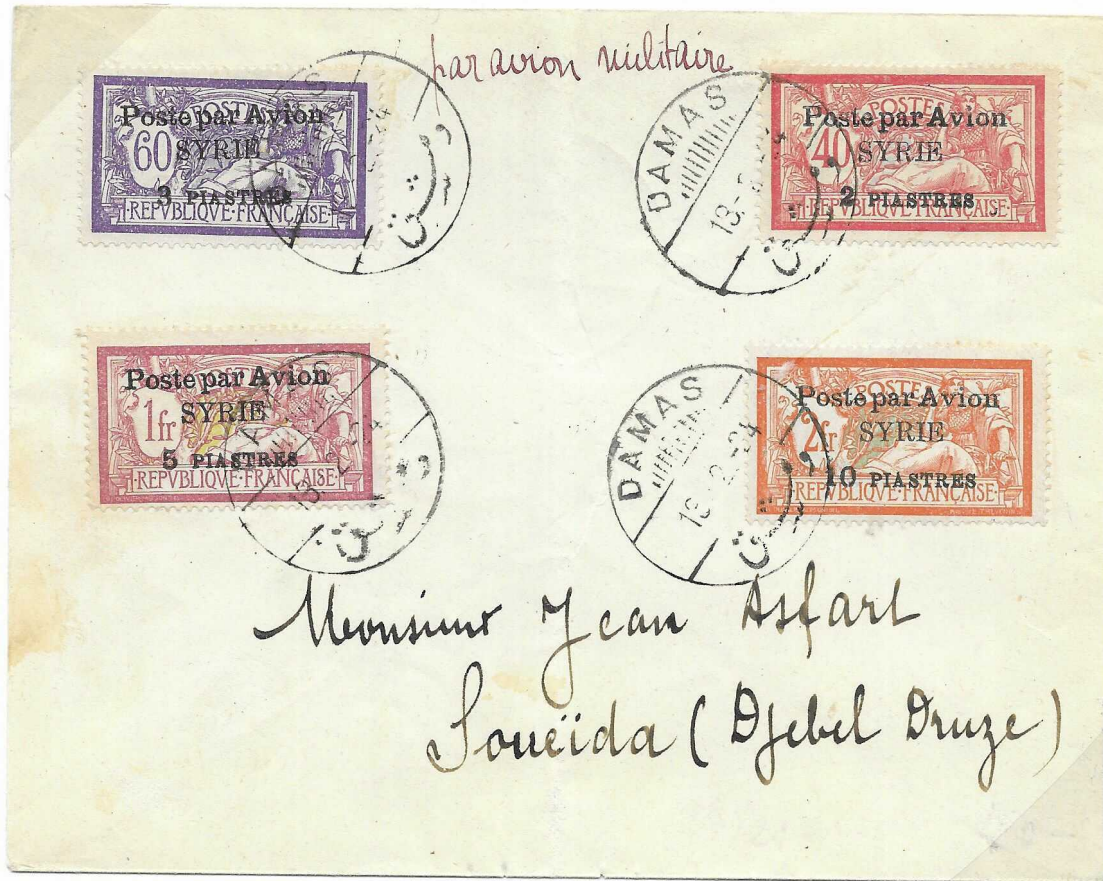 par avion militaire
60 POSTES
Poste par Avion
SYRIE
3 PIASTRES
·REPVBLIQVE·FRANÇAISE·
40 POSTES
Poste par Avion
SYRIE
2 PIASTRES
·REPVBLIQVE·FRANÇAISE·
DAMAS
دمشق
1fr
Poste par Avion
SYRIE
5 PIASTRES
·REPVBLIQVE·FRANÇAISE·
دمشق
2fr POSTES
Poste par Avion
SYRIE
10 PIASTRES
REPVBLIQVE·FRANÇAISE·
DAMAS
دمشق
Monsieur Jean Asfart
Soueïda ( Djebel Druze )